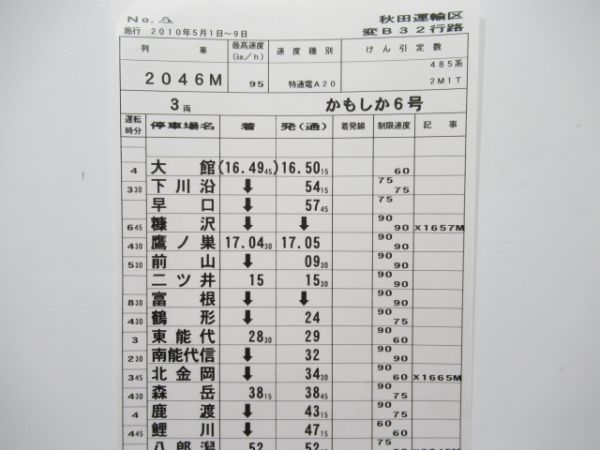 No. 4
秋田運輸区
施行 2010年5月1日～9日
変B32行路
列車 最高速度(km/h) 速度種別 けん引定数
2046M 95 特通電A20 485系 2M1T
3両 かもしか6号
運転時分 停車場名 着 発(通) 着発線 制限速度 記事
4 大館 (16.49 45) 16.50 15 60
3 30 下川沿 ↓ 54 15 75 75
早口 ↓ 57 45 75
6 45 糠沢 ↓ ↓ 90 90 X1657M
4 30 鷹ノ巣 17.04 30 17.05 90 90
5 30 前山 ↓ 09 30 90 90
二ツ井 15 15 30 90
8 30 富根 ↓ ↓ 90 90
4 30 鶴形 ↓ 24 90 75
3 東能代 28 30 29 90 90
2 30 南能代信 ↓ 32 90 90
3 45 北金岡 ↓ 34 30 90 60 X1665M
4 30 森岳 38 15 38 45 90 75
4 鹿渡 ↓ 43 15 90 75
4 45 鯉川 ↓ 47 15 60 60
八郎潟 52 52 75